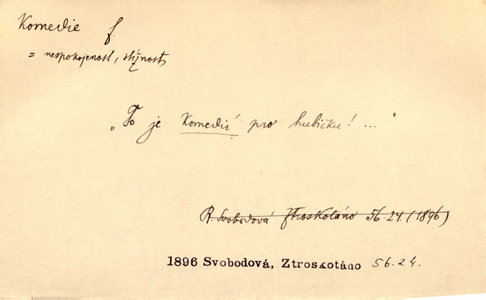 Komedie f.
= nespokojenost, stížnost
„To je Komedií pro hubičku! ..."
R. Svobodová Ztroskotáno 56.24 (1896)
1896 Svobodová, Ztroskotáno 56.24.